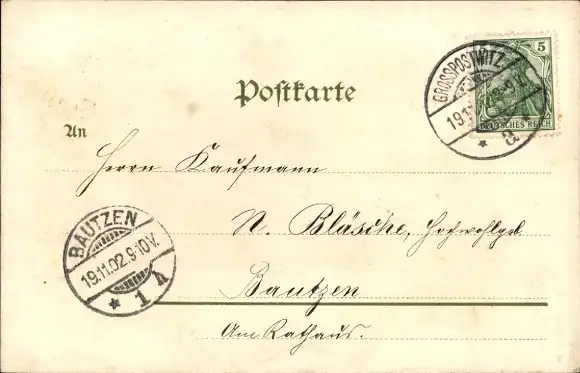 Postkarte
5
DEUTSCHES REICH
GROSSPOSTWITZ
19.11
a
An
Herrn Kaufmann
N. Bläsche, Hochwohlgeb.
BAUTZEN
19.11.02.9-10V.
* 1 h
Bautzen
Am Rathaus.